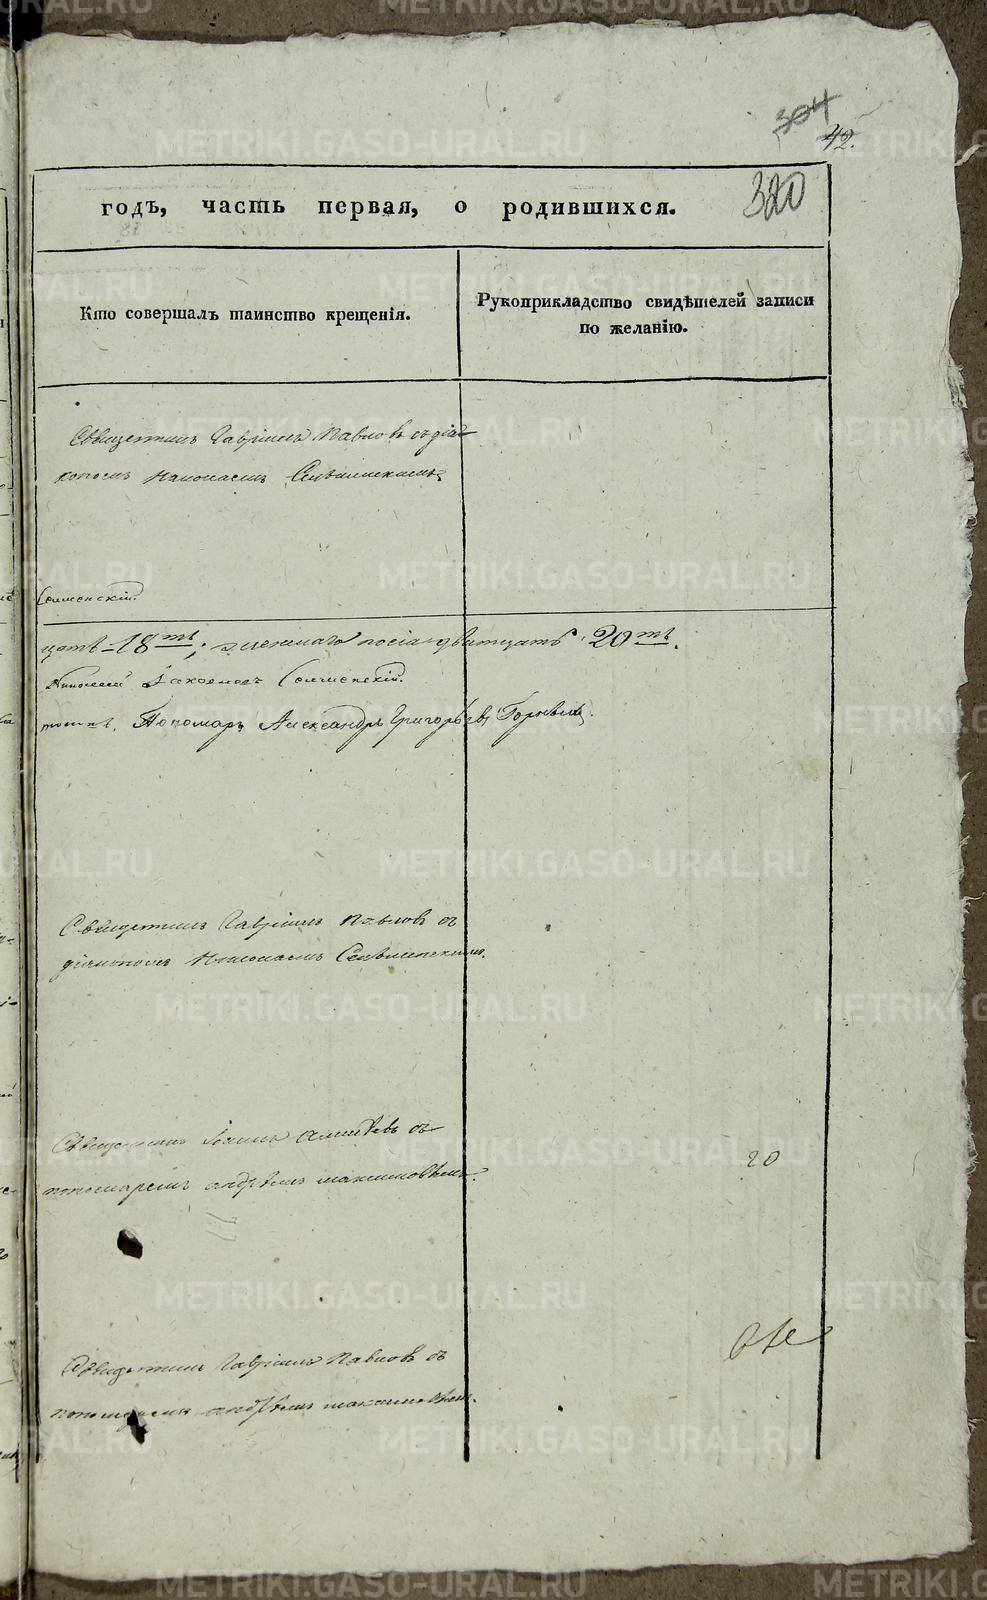 304
42.
320
годъ, часть первая, о родившихся.
Кто совершалъ таинство крещенія.
Рукоприкладство свидѣтелей записи
по желанію.
Священникъ Гавріилъ Павловъ съ діа-
кономъ Николаемъ
цать 18ть; женскаго дватцать 20ть.
Николай
Пономарь Александръ Григорьевъ
Священникъ Гавріилъ Павловъ съ
діакономъ Николаемъ
Священникъ Іоаннъ съ
пономаремъ андрѣемъ максимовымъ.
20
Священникъ Гавріилъ Павловъ съ
пономаремъ андрѣемъ максимовымъ.
METRIKI.GASO-URAL.RU